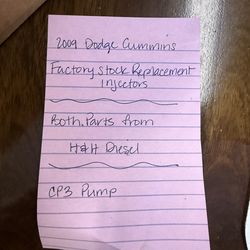 2009 Dodge Cummins
Factory stock Replacement
Injectors
Both Parts from
H&H Diesel
CP3 Pump